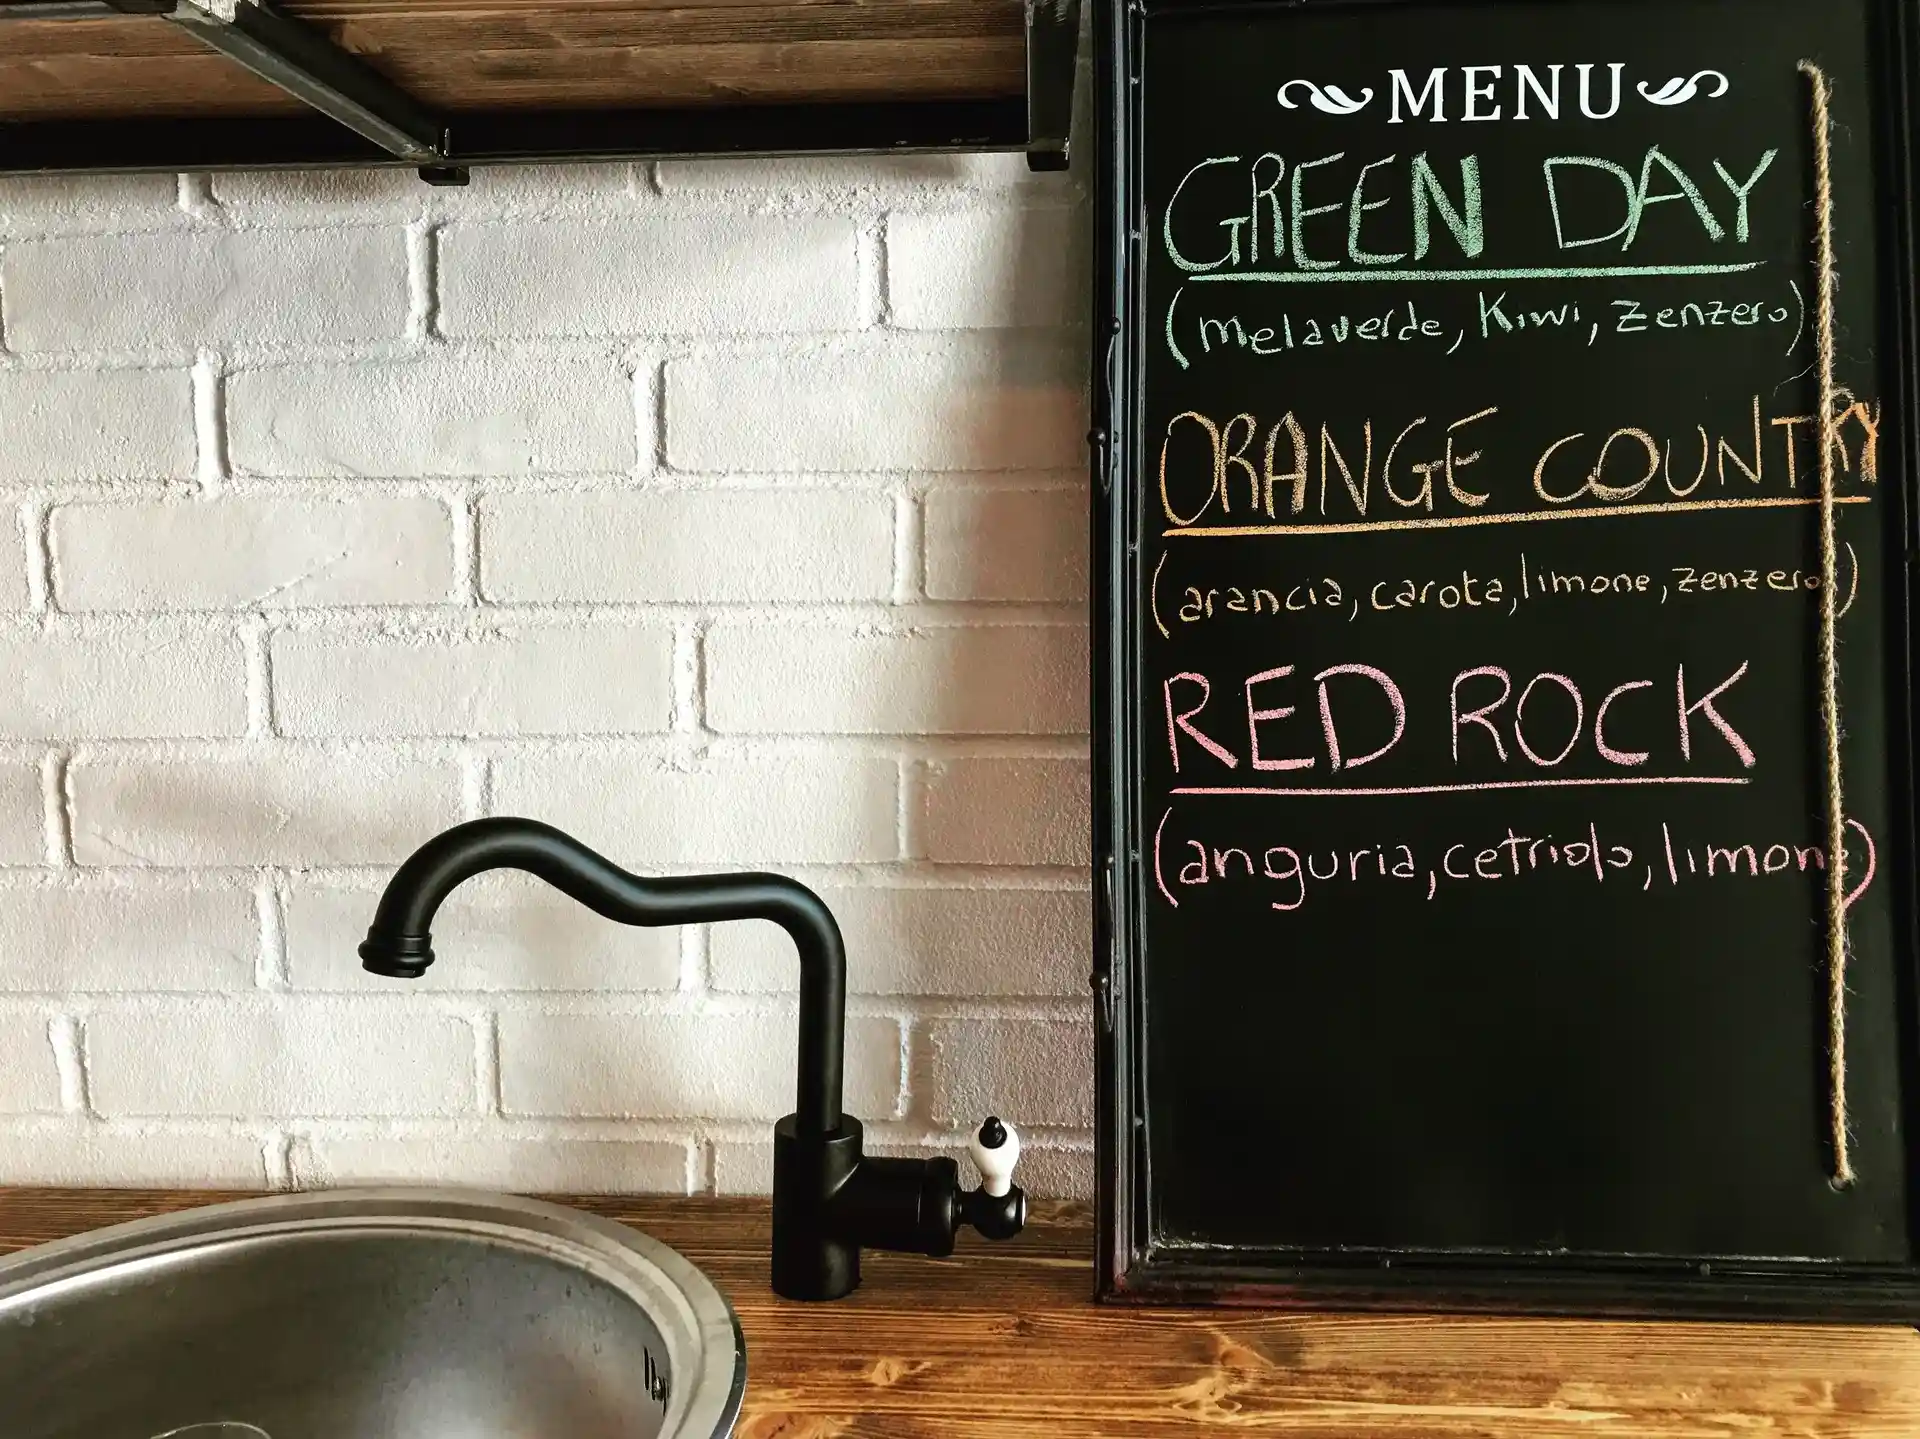 MENU
GREEN DAY
(melaverde, Kiwi, zenzero)
ORANGE COUNTRY
(arancia, carota, limone, zenzero)
RED ROCK
(anguria, cetriolo, limone)